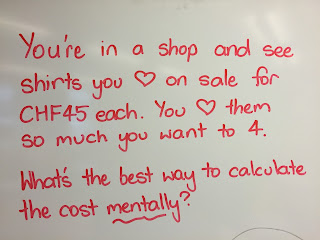 You're in a shop and see
shirts you ♡ on sale for
CHF45 each. You ♡ them
so much you want to 4.
What's the best way to calculate
the cost mentally?